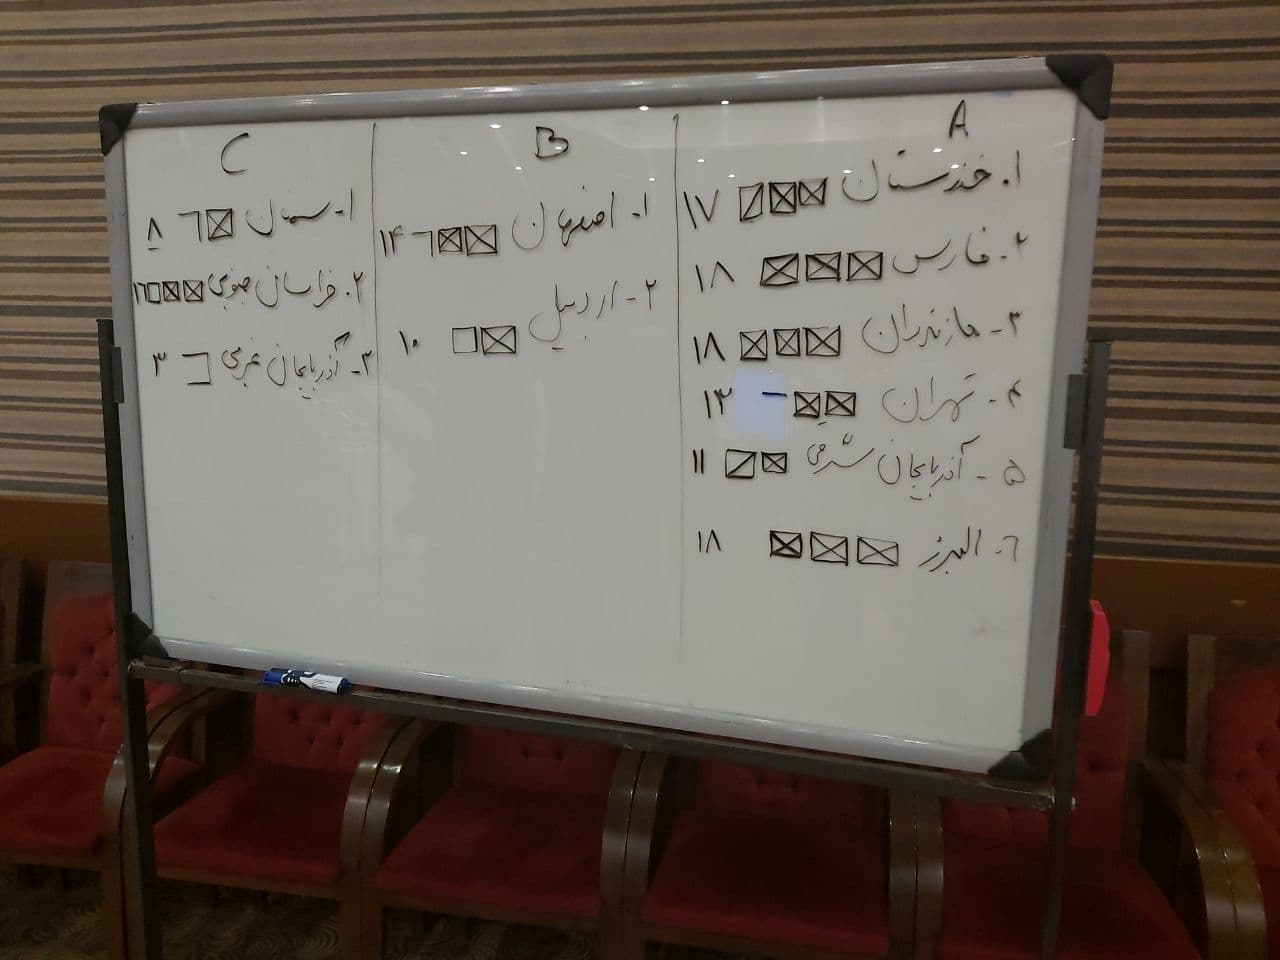 A
۱. خوزستان ۱۷
۲. فارس ۱۸
۳- مازندران ۱۸
۴- تهران ۱۳
۵- آذربایجان شرقی ۱۱
۶- البرز ۱۸
B
۱- اصفهان ۱۴
۲- اردبیل ۱۰
C
۱- سمنان ۸
۲. خراسان جنوبی ۱۶
۳- آذربایجان غربی ۳